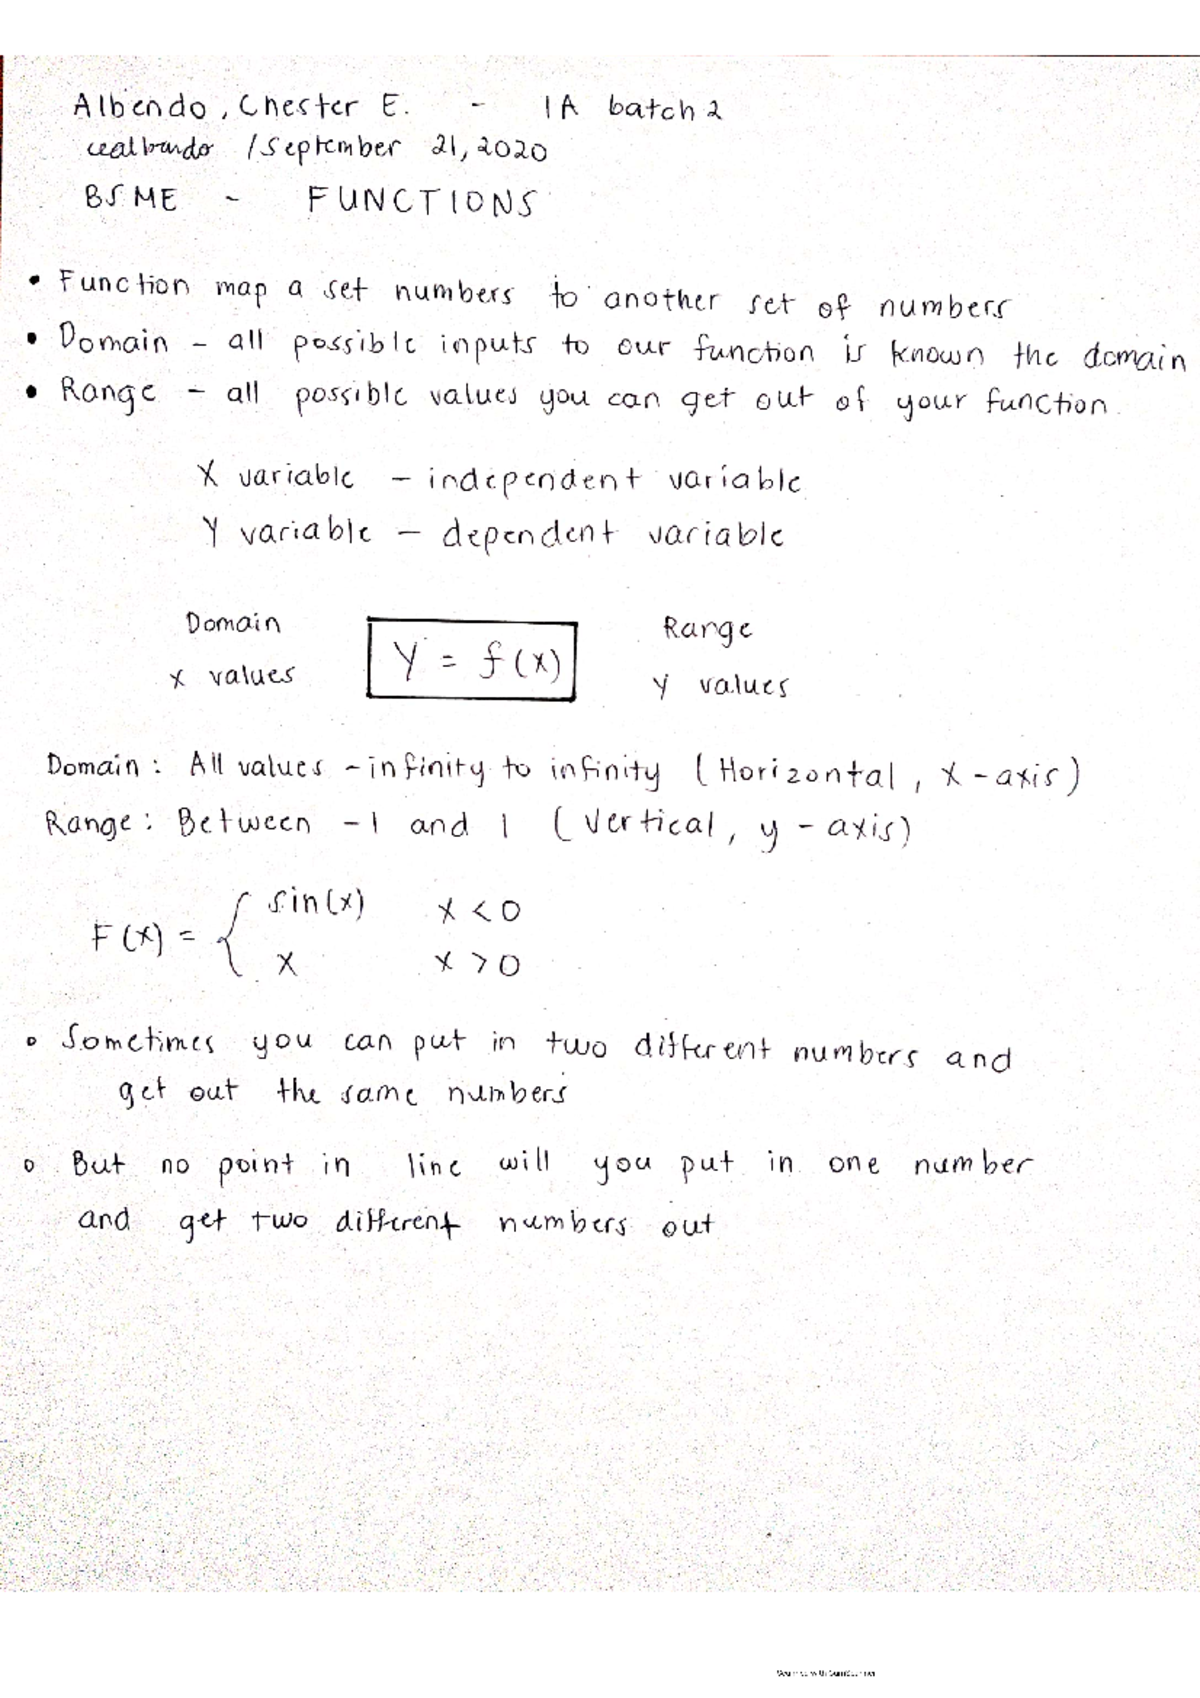 Albendo, Chester E. - 1A batch 2
cealbendo / September 21, 2020
BSME - FUNCTIONS
• Function map a set numbers to another set of numbers
• Domain - all possible inputs to our function is known the domain
• Range - all possible values you can get out of your function.
X variable - independent variable
Y variable - dependent variable
Domain Y = f(x) Range
x values y values
Domain: All values -infinity to infinity (Horizontal, x-axis)
Range: Between -1 and 1 (Vertical, y-axis)
F(x) = { sin(x) x < 0
x x > 0
o Sometimes you can put in two different numbers and
get out the same numbers
o But no point in line will you put in one number
and get two different numbers out
Scanned with CamScanner